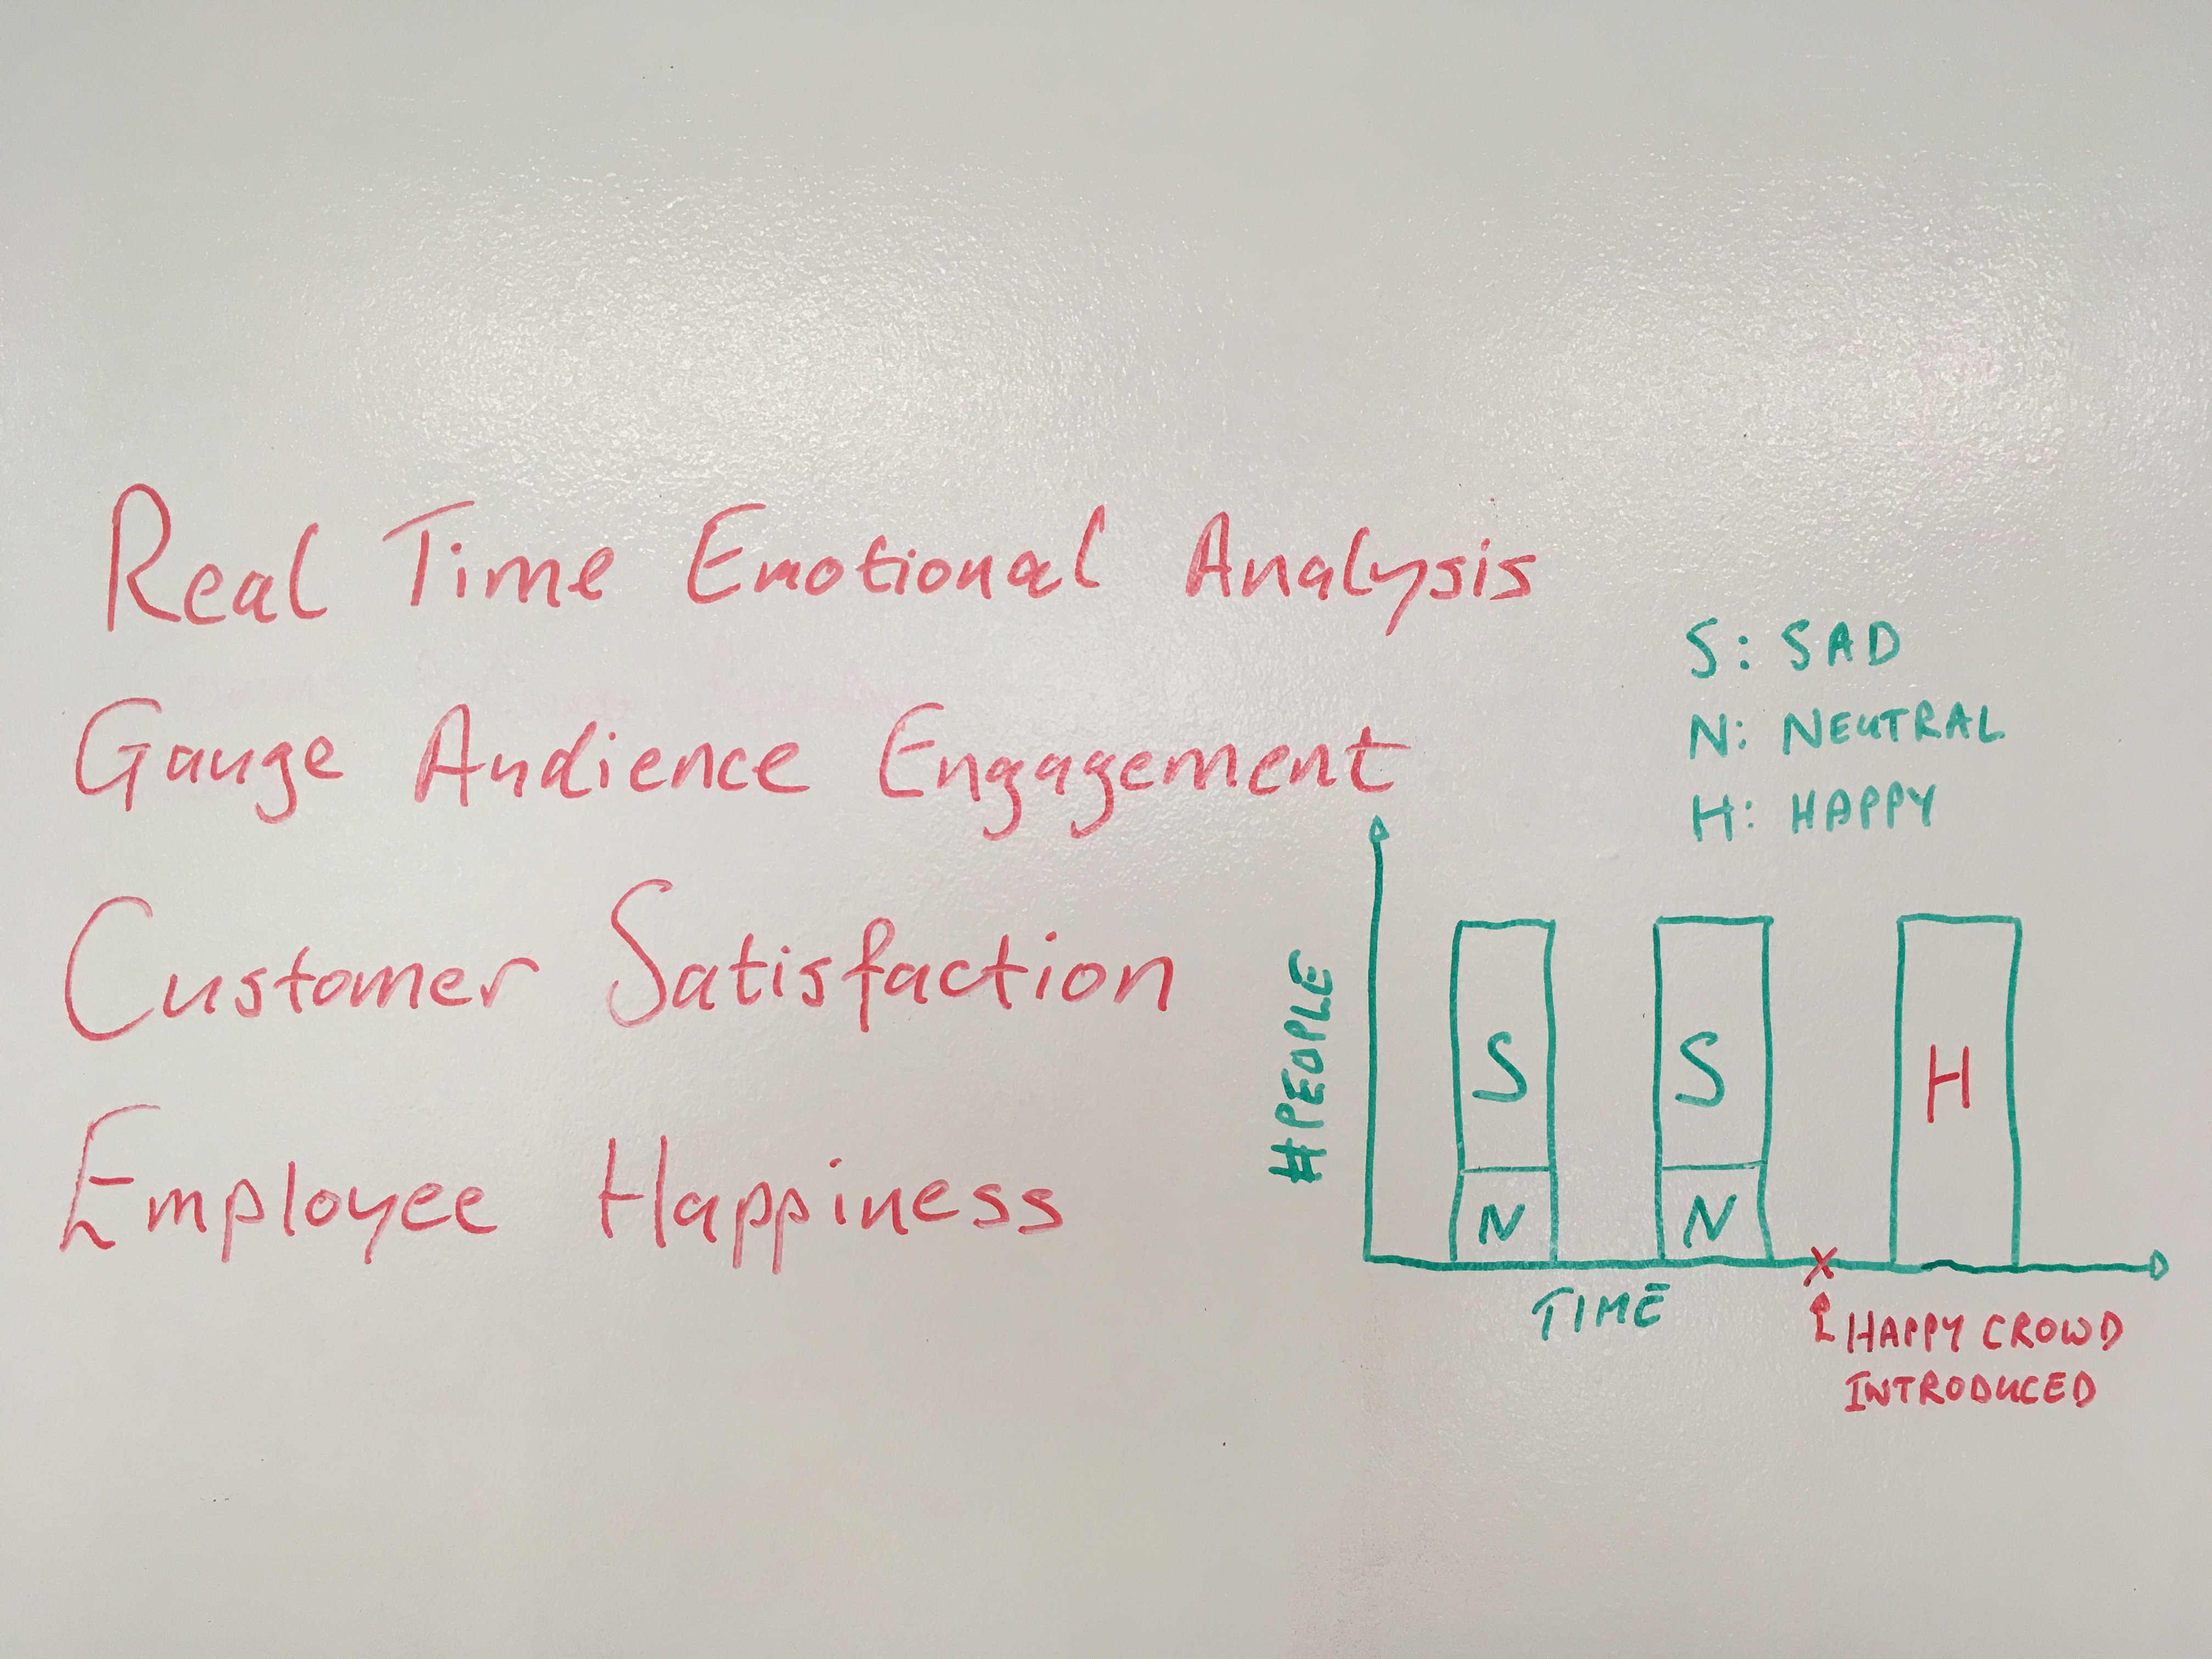 Real Time Emotional Analysis
Gauge Audience Engagement
Customer Satisfaction
Employee Happiness
S: SAD
N: NEUTRAL
H: HAPPY
#PEOPLE
S
S
H
N
N
TIME
HAPPY CROWD
INTRODUCED